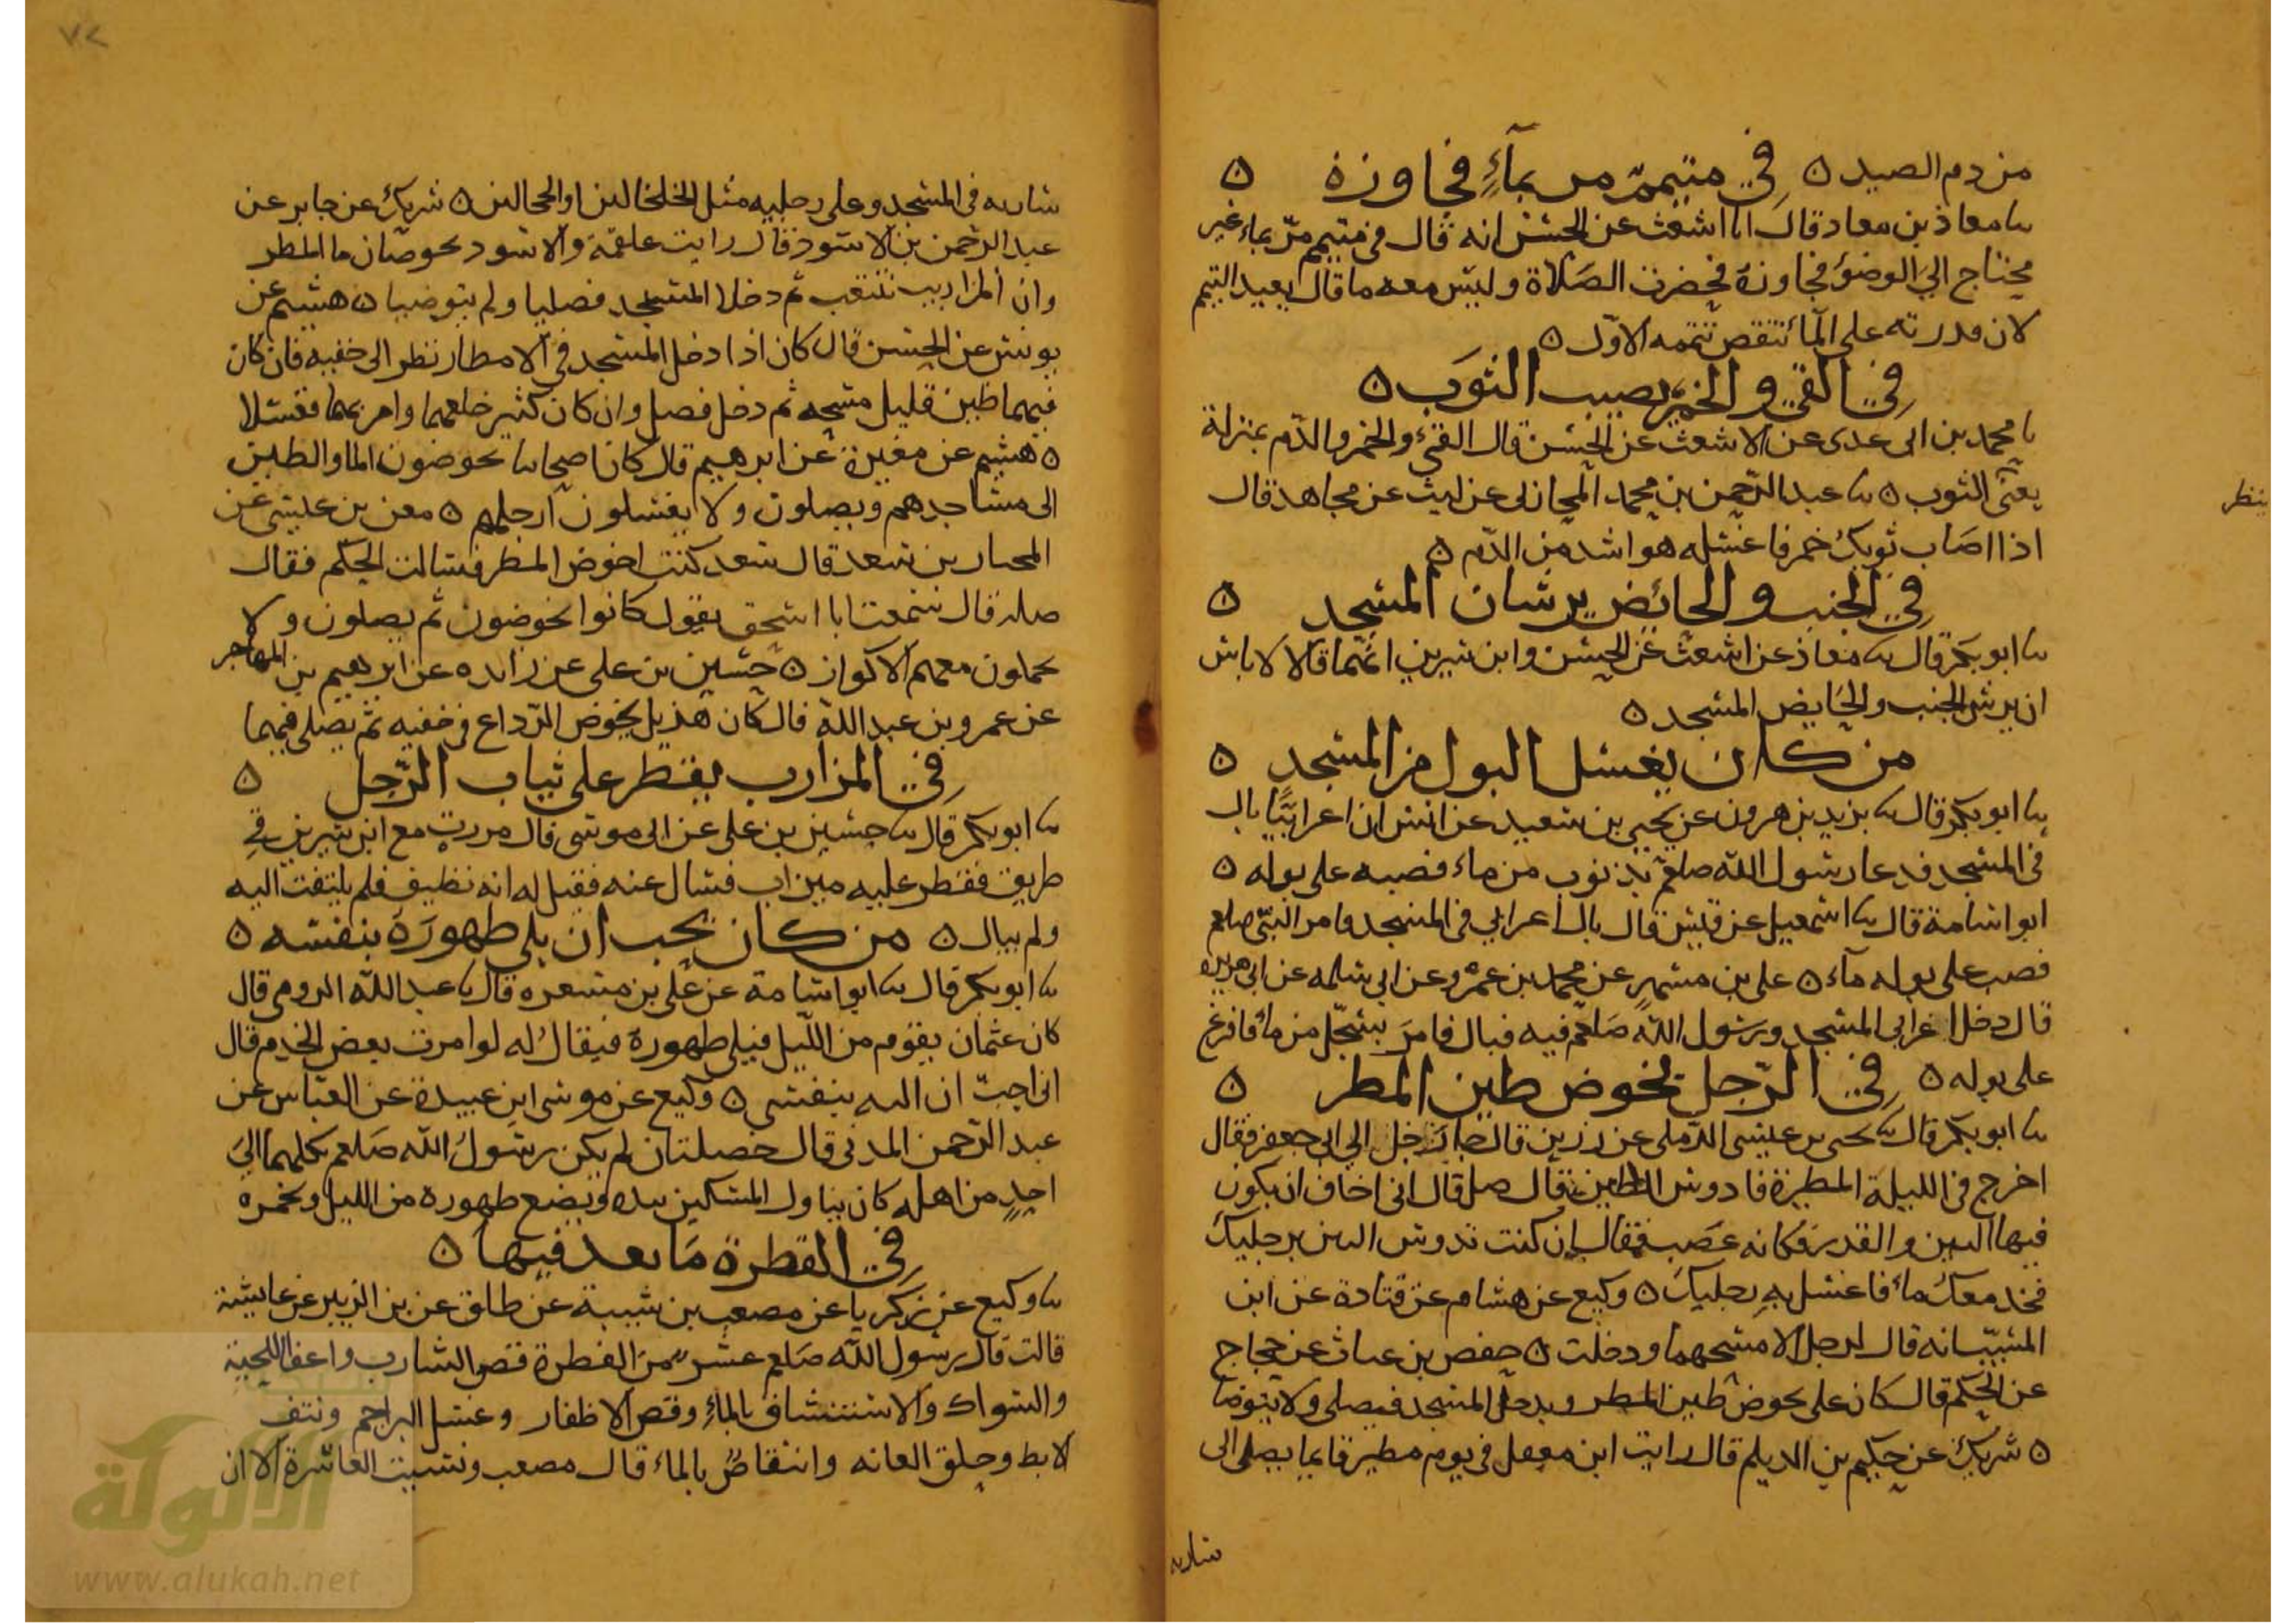 من دم الصيد ه في متيمم مر بماء فجاوزه ه
سا معاذ بن معاد قال انا اشعث عن الحسن انه قال في متيمم مرّ بماء غير
محتاج الى الوضوء فجاوزه فحضرت الصلاة وليس معه ما قال يعيد التيمم
لان قدرته على الماء تنقض تيممه الاول ه
في القيء والخمر يصيب الثوب ه
نا محمد بن ابي عدى عن الاشعث عن الحسن قال القيء والخمر والدم بمنزلة
يعنى الثوب ه سا عبد الرحمن بن محمد المحاربى عن ليث عن مجاهد قال
ينظر
اذا اصاب ثوبك خمر فاغسله هو اشد من الدم ه
في الجنب والحائض يرشان المسجد ه
سا ابو بكر قال سا معاذ عن اشعث عن الحسن وابن سيرين انهما قالا لا باس
ان يرش الجنب والحايض المسجد ه
من كان يغسل البول من المسجد ه
سا ابو بكر قال سا يزيد بن هرون عن يحيى بن سعيد عن انس ان اعرابيا بال
في المسجد فدعا رسول الله صلعم بذنوب من ماء فصبه على بوله ه
ابو اسامة قال سا اسمعيل عن قيس قال بال اعرابي في المسجد فامر النبي صلعم
فصب على بوله ماء ه على بن مسهر عن محمد بن عمرو عن ابي سلمه عن ابي هريره
قال دخل اعرابي المسجد ورسول الله صلعم فيه فبال فامر بسجل من ماء فافرغ
على بوله ه في الرجل يخوض طين المطر ه
سا ابو بكر قال سا يحيى بن عيسى الرملى عن رزين قال جاء رجل الى ابي جعفر فقال
اخرج في الليلة المطيرة فادوس الطين قال صل قال انى اخاف ان يكون
فيها النتن والقدر فكانه غضب فقال ان كنت تدوس النتن برجليك
فخذ معك ماء فاغسل به رجليك ه وكيع عن هشام عن قتادة عن ابن
المسيب انه قال لرجل الا مسحهما ودخلت ه حفص بن غياث عن حجاج
عن الحكم قال كان على يخوض طين المطر ويدخل المسجد فيصلى ولا يتوضا
ه شريك عن حكيم بن الديلم قال رايت ابن معقل في يوم مطير قايما يصلى الى
ساريه
ساريه في المسجد وعلى رجليه مثل الخلخالين او الحجالين ه شريك عن جابر عن
عبد الرحمن بن الاسود قال رايت علقمة والاسود يخوضان ما المطر
وان المزاريب تنثعب ثم دخلا المسجد فصليا ولم يتوضيا ه هشيم عن
يونس عن الحسن قال كان اذا دخل المسجد في الامطار نظر الى خفيه فان كان
فيهما طين قليل مسحه ثم دخل فصل وان كان كثير خلعهما وامر بهما فغسلا
ه هشيم عن مغيرة عن ابرهيم قال كان اصحابنا يخوضون الما والطين
الى مساجدهم ويصلون ولا يغسلون ارجلهم ه معن بن عيسى عن
المختار بن سعد قال سعد كنت اخوض المطر فسالت الحكم فقال
صله قال سمعت ابا اسحق يقول كانوا يخوضون ثم يصلون ولا
يحملون معهم الاكواز ه حسين بن على عن زايده عن ابرهيم بن المهاجر
عن عمرو بن عبد الله قال كان هذيل يخوض الرداع في خفيه ثم يصلى فيهما
في المزارب يقطر على ثياب الرجل ه
سا ابو بكر قال سا حسين بن على عن ابي موسى قال مررت مع ابن سيرين في
طريق فقطر عليه ميزاب فسال عنه فقيل له انه نظيف فلم يلتفت اليه
ولم يبال ه من كان يحب ان يلي طهوره بنفسه ه
سا ابو بكر قال سا ابو اسامة عن على بن مسعره قال نا عبد الله الرومى قال
كان عثمان يقوم من الليل فيلى طهوره فيقال له لو امرت بعض الخدم قال
انى احب ان اليه بنفسى ه وكيع عن موسى ابن عبيدة عن العباس عن
عبد الرحمن المدنى قال خصلتان لم يكن رسول الله صلعم يكلهما الى
احد من اهله كان يناول المسكين بيده ويضع طهوره من الليل ويخمره
في الفطرة ما يعد فيها ه
سا وكيع عن زكريا عن مصعب بن شيبة عن طلق عن بن الزبير عن عايشة
قالت قال رسول الله صلعم عشر من الفطرة قص الشارب واعفا اللحية
والسواك والاستنشاق بالماء وقص الاظفار وغسل البراجم ونتف
لابط وحلق العانه وانتقاص بالماء قال مصعب ونسيت العاشرة الا ان
الألوكة
www.alukah.net